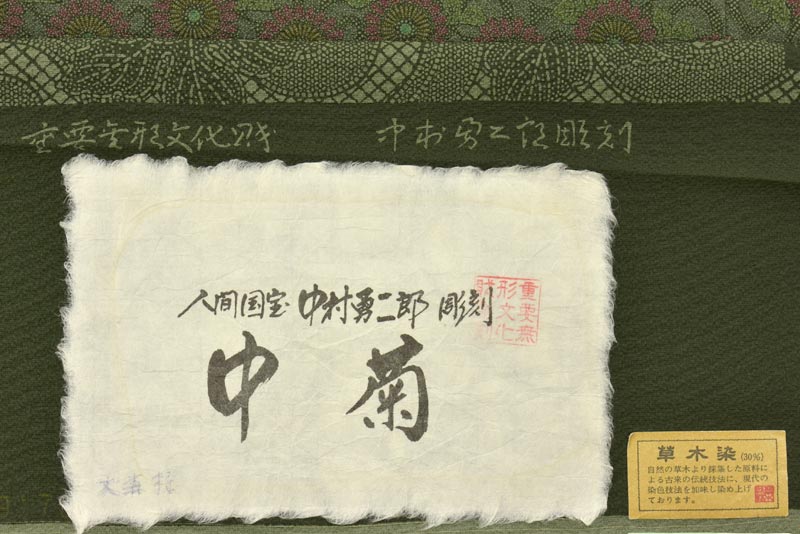 重要無形文化財 中村勇二郎彫刻
人間国宝 中村勇二郎 彫刻
重要無
形文化
財
中菊
草木染(30%)
自然の草木より採集した原料に
よる古来の伝統技法に、現代の
染色技法を加味し染め上げ
ております。